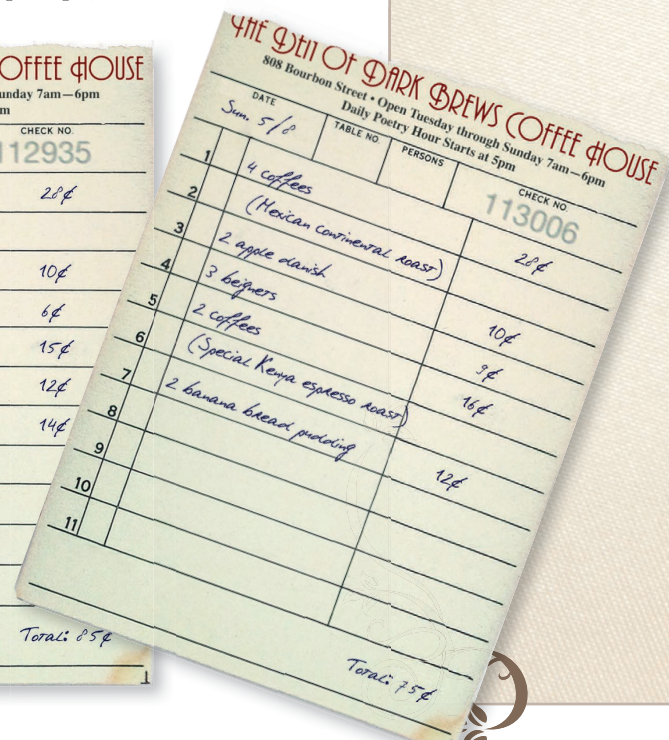 OFFEE HOUSE
unday 7am—6pm
m
CHECK NO.
112935
28¢
10¢
6¢
15¢
12¢
14¢
Total: 85¢
THE DEN OF DARK BREWS COFFEE HOUSE
808 Bourbon Street • Open Tuesday through Sunday 7am—6pm
Daily Poetry Hour Starts at 5pm
DATE TABLE NO. PERSONS CHECK NO.
Sun. 5/8 113006
1 4 coffees 28¢
2 (Mexican continental roast)
3 2 apple danish 10¢
4 3 beignets 9¢
5 2 coffees 16¢
6 (Special Kenya espresso roast)
7 2 banana bread pudding 12¢
8
9
10
11
Total: 75¢